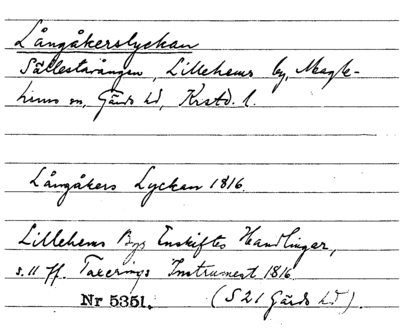 Långåkerslyckan
Sällestavången, Lillehems by, Maglehems sn, Gärds hd, Krstd. l.
Långåkers Lyckan 1816.
Lillehems Bys Enskiftes Handlingar,
s. 11 ff. Taxerings Instrument 1816
Nr 5351. (S 21 Gärds hd).